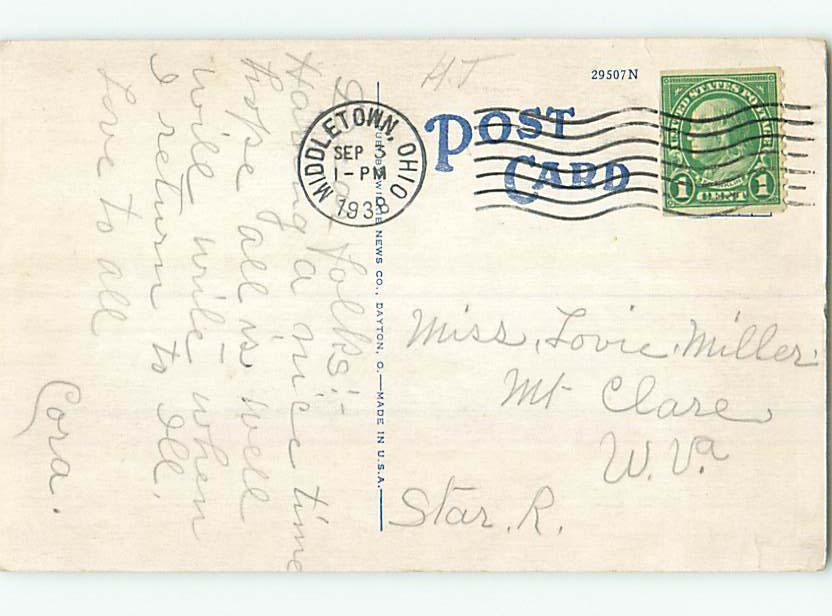 folks!-
Having a nice time
hope all is well
will write when
I return to Ill.
Love to all
Cora.
H.T
29507N
POST
CARD
MIDDLETOWN, OHIO
SEP 3
1-PM
1938
UNITED STATES POSTAGE
1 CENT 1
NEWS CO., DAYTON, O.—MADE IN U.S.A.
Miss, Lovie Miller
Mt Clare
W. Va.
Star. R.